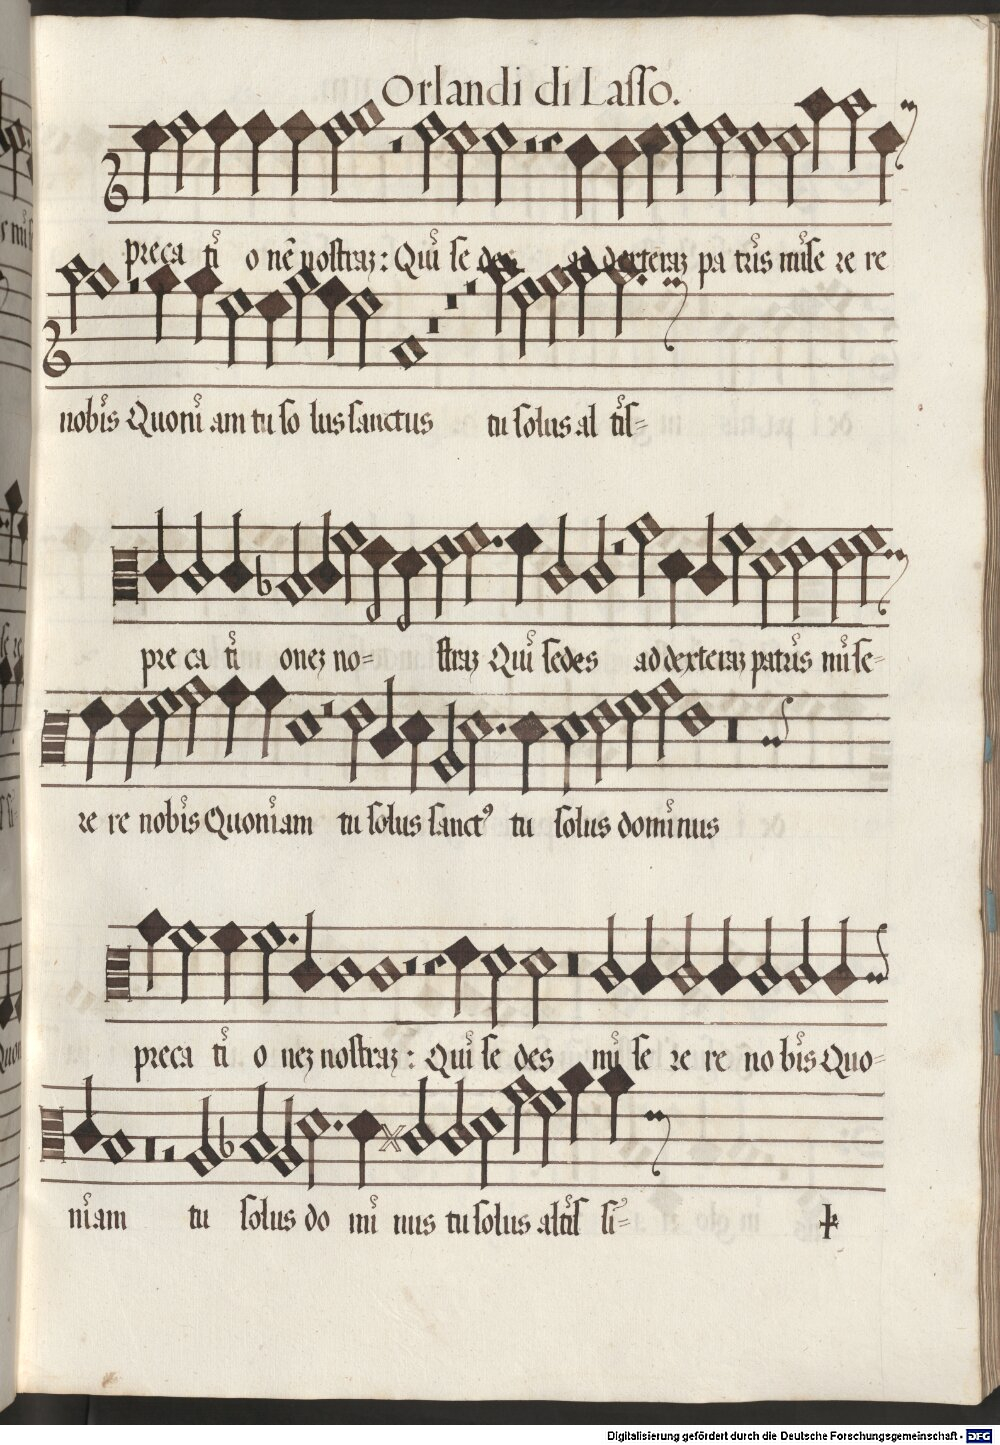 Orlandi di Lasso.
preca ti onē nostraz: Qui se des ad dexteraz pa tris mise re re
nobis Quoni am tu so lus sanctus tu solus al tis=
pre ca ti onez no= straz Qui sedes ad dexteraz patris mise=
re re nobis Quoniam tu solus sanct9 tu solus dominus
preca ti o nez nostraz: Qui se des mi se re re no bis Quo=
niam tu solus do mi nus tu solus altis si=
Digitalisierung gefördert durch die Deutsche Forschungsgemeinschaft - DFG